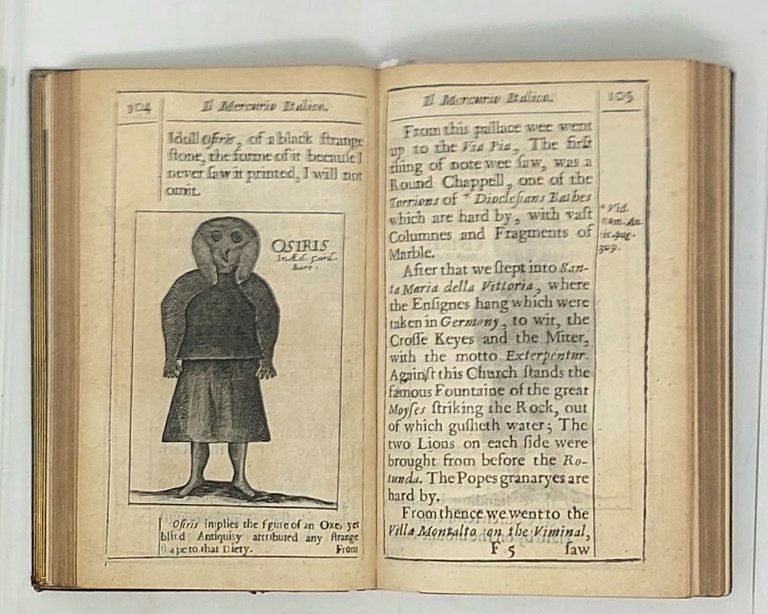 104
Il Mercurio Italico.
Idoll Osiris, of a black strange
stone, the forme of it because I
never saw it printed, I will not
omit.
OSIRIS
In Æd. Card.
Barb.
Osiris implies the figure of an Oxe, yet
blind Antiquity attributed any strange
shape to that Diety.
From
Il Mercurio Italico.
105
From this pallace wee went
up to the Via Pia, The first
thing of note wee saw, was a
Round Chappell, one of the
Torrions of * Dioclesians Bathes
which are hard by, with vast
Columnes and Fragments of
Marble.
* Vid.
Rom. An-
tic. pag.
329.
After that we stept into San-
ta Maria della Vittoria, where
the Ensignes hang which were
taken in Germany, to wit, the
Crosse Keyes and the Miter,
with the motto Exterpentur.
Against this Church stands the
famous Fountaine of the great
Moyses striking the Rock, out
of which gusheth water; The
two Lions on each side were
brought from before the Ro-
tunda. The Popes granaryes are
hard by.
From thence we went to the
Villa Montalto on the Viminal,
F 5
saw